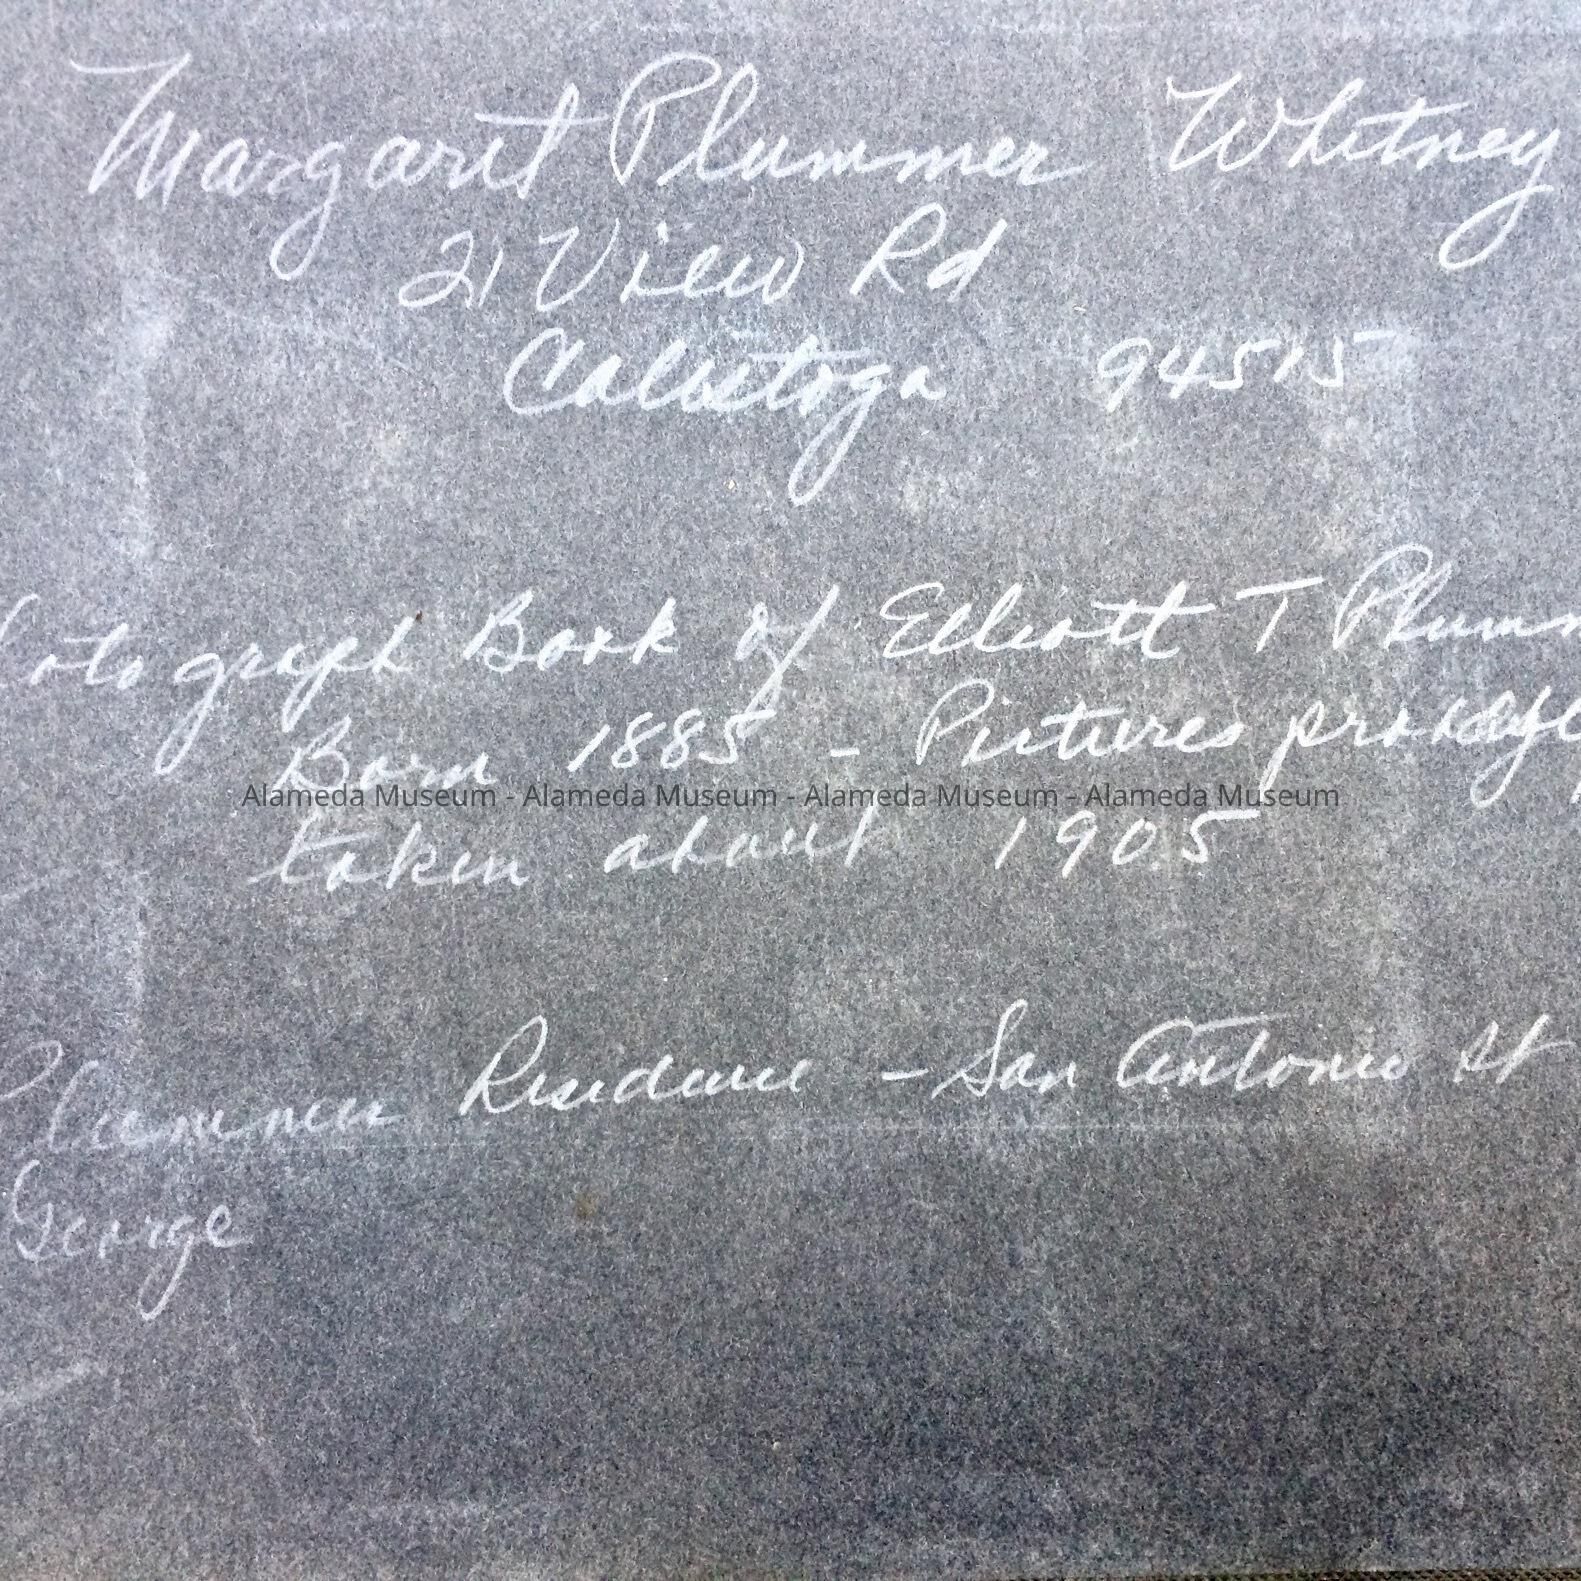 Margaret Plummer Whitney
21 View Rd
Calistoga 94515
Fotograph Book of Elliott T Plumm
Born 1885 - Pictures probably
Alameda Museum - Alameda Museum - Alameda Museum - Alameda Museum
taken about 1905
Plummer Residence - San Antonio St
George